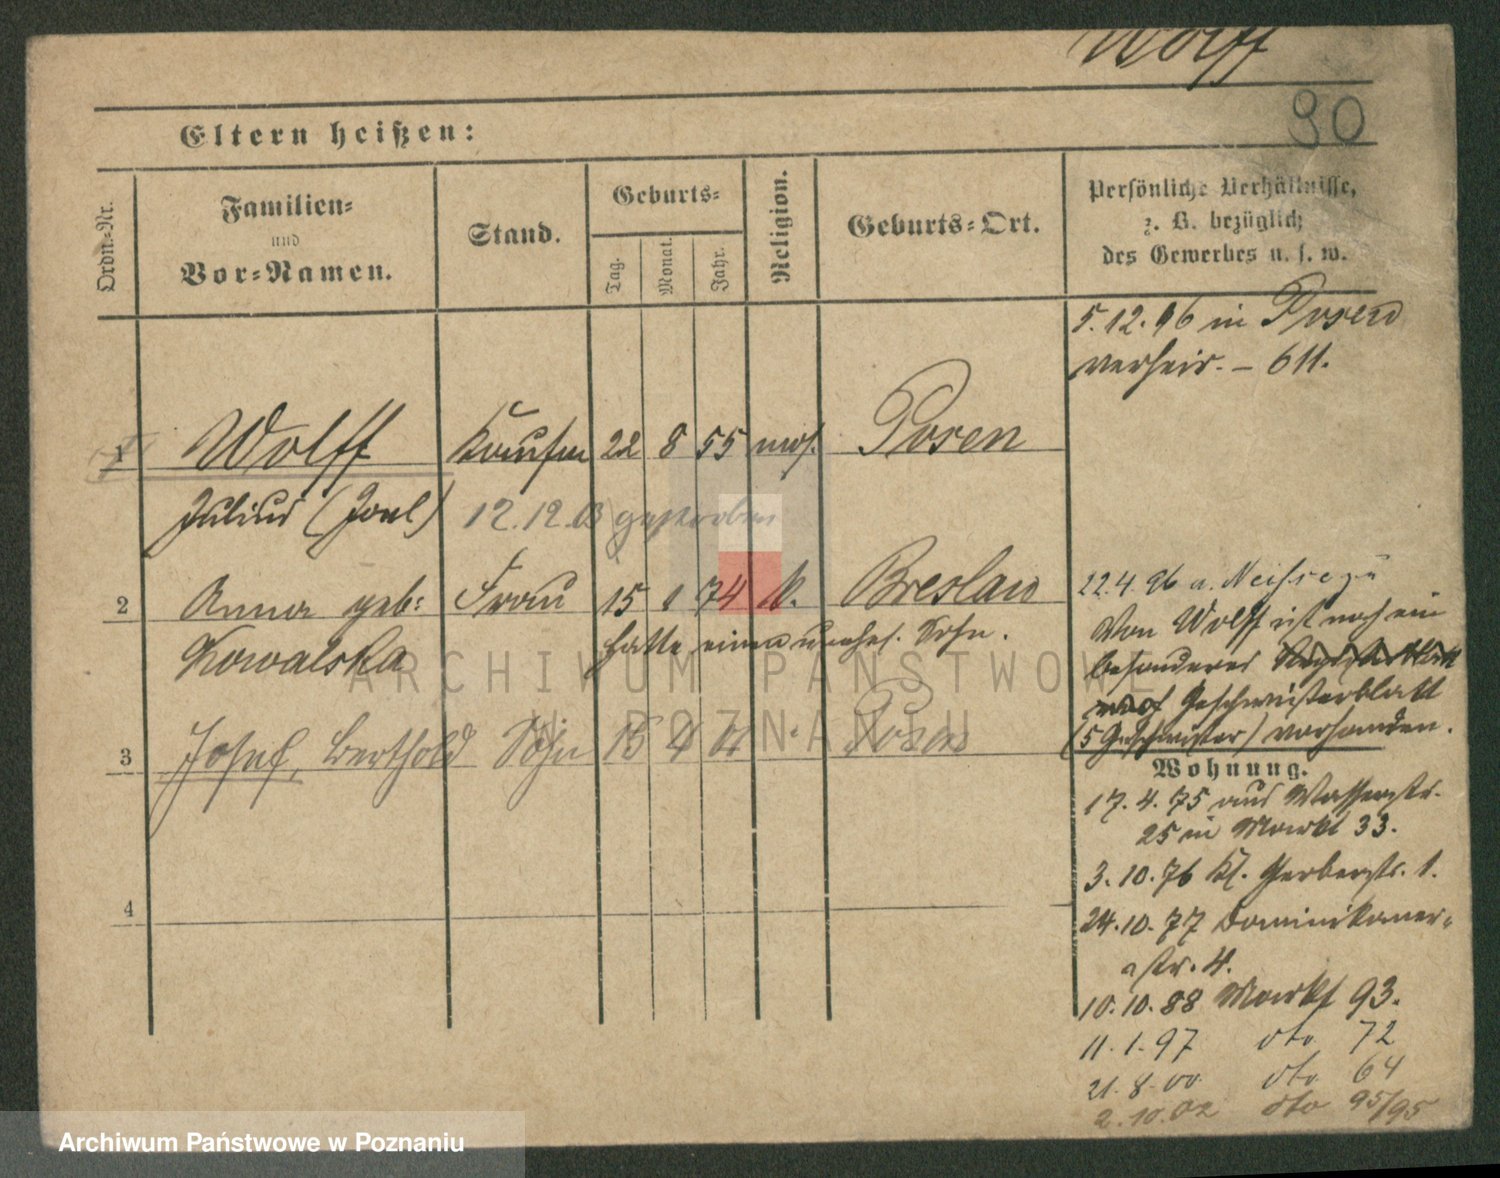 Wolff
90
Eltern heißen:
Ordn.-Nr.
Familien-
und
Vor-Namen.
Stand.
Geburts-
Tag.
Monat.
Jahr.
Religion.
Geburts-Ort.
Persönliche Verhältnisse,
z. B. bezüglich
des Gewerbes u. s. w.
5.12.96 in Posen
verheir. – 611.
1 Wolff Kaufm 22 8 55 mos. Posen
Julius (Joel) 12.12.03 gestorben
2 Anna geb: Frau 15 1 74 k. Breslau
Kowalska hatte einen unehel. Sohn.
22.4.96 a. Neisse zu
Von Wolff ist noch ein
besonderes
Geschwisterblatt
(5 Geschwister) vorhanden.
3 Josef, Berthold Sohn 15 4 Posen
Wohnung.
17.4.75 aus Wasserstr.
25 in Markt 33.
3.10.76 Kl. Gerberstr. 1.
24.10.77 Dominikaner-
str. 4.
10.10.88 Markt 93.
11.1.97 dto 72
21.8.00 dto 64
2.10.02 dto 95/95
4
ARCHIWUM PAŃSTWOWE
W POZNANIU
Archiwum Państwowe w Poznaniu